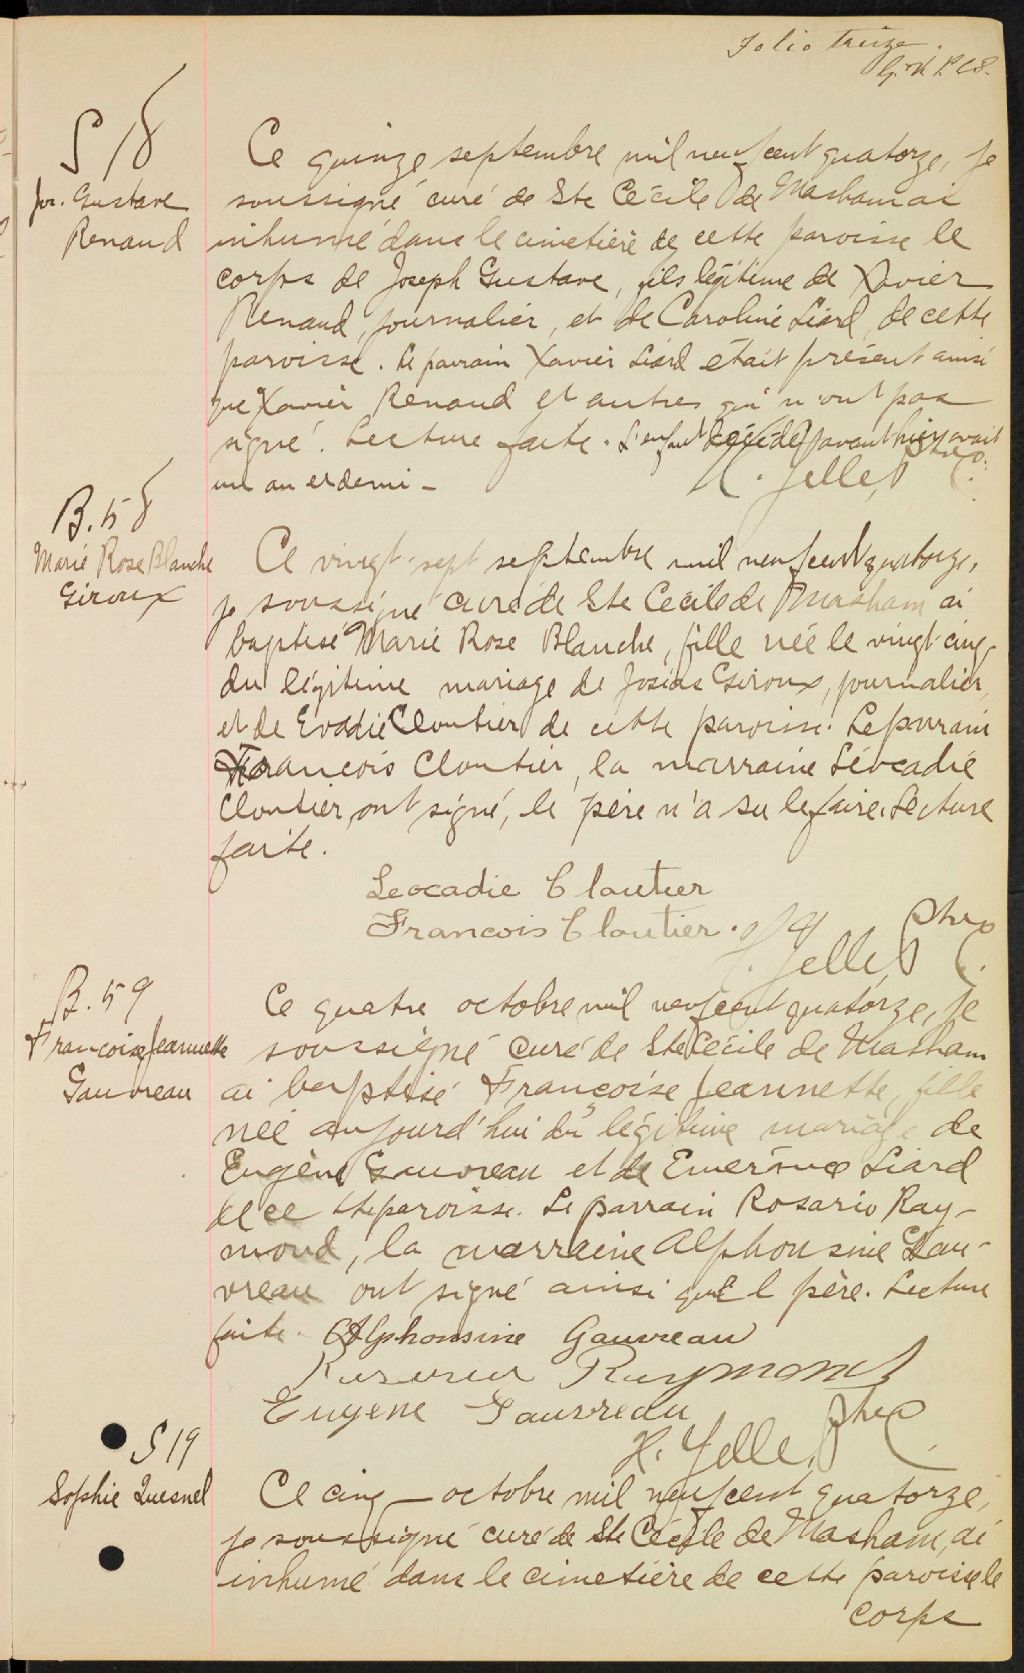 Folio treize.
S 18
Jos. Gustave
Renaud
Ce quinze septembre mil neuf cent quatorze, je
soussigné curé de Ste Cécile de Masham ai
inhumé dans le cimetière de cette paroisse le
corps de Joseph Gustave, fils légitime de Xavier
Renaud, journalier, et de Caroline Liard, de cette
paroisse. Le parrain Xavier Liard était présent ainsi
que Xavier Renaud et autres qui n'ont pas
signé. Lecture faite. L'enfant décédé avant hier avait
un an et demi -
H. Yelle, Ptre C.
B. 58
Marie Rose Blanche
Giroux
Ce vingt-sept septembre mil neuf cent quatorze,
je soussigné curé de Ste Cécile de Masham ai
baptisé Marie Rose Blanche, fille née le vingt-cinq
du légitime mariage de Josias Giroux, journalier,
et de Evodie Cloutier de cette paroisse. Le parrain
Francois Cloutier, la marraine Léocadie
Cloutier, ont signé, le père n'a su le faire. Lecture
faite.
Leocadie Cloutier
Francois Cloutier.
H. Yelle, Ptre C.
B. 59
Francoise Jeannette
Gauvreau
Ce quatre octobre mil neuf cent quatorze, je
soussigné curé de Ste Cécile de Masham
ai baptisé Françoise Jeannette, fille
née aujourd'hui du légitime mariage de
Eugène Gauvreau et de Liard
de cette paroisse. Le parrain Rosario Ray-
mond, la marraine Alphonsine Gau-
vreau ont signé ainsi que l père. Lecture
faite. Alphonsine Gauvreau
Raymond
Eugene Gauvreau
H. Yelle, Ptre C.
S 19
Sophie Quesnel
Ce cinq octobre mil neuf cent quatorze,
je soussigné curé de Ste Cécile de Masham, ai
inhumé dans le cimetière de cette paroisse le
corps